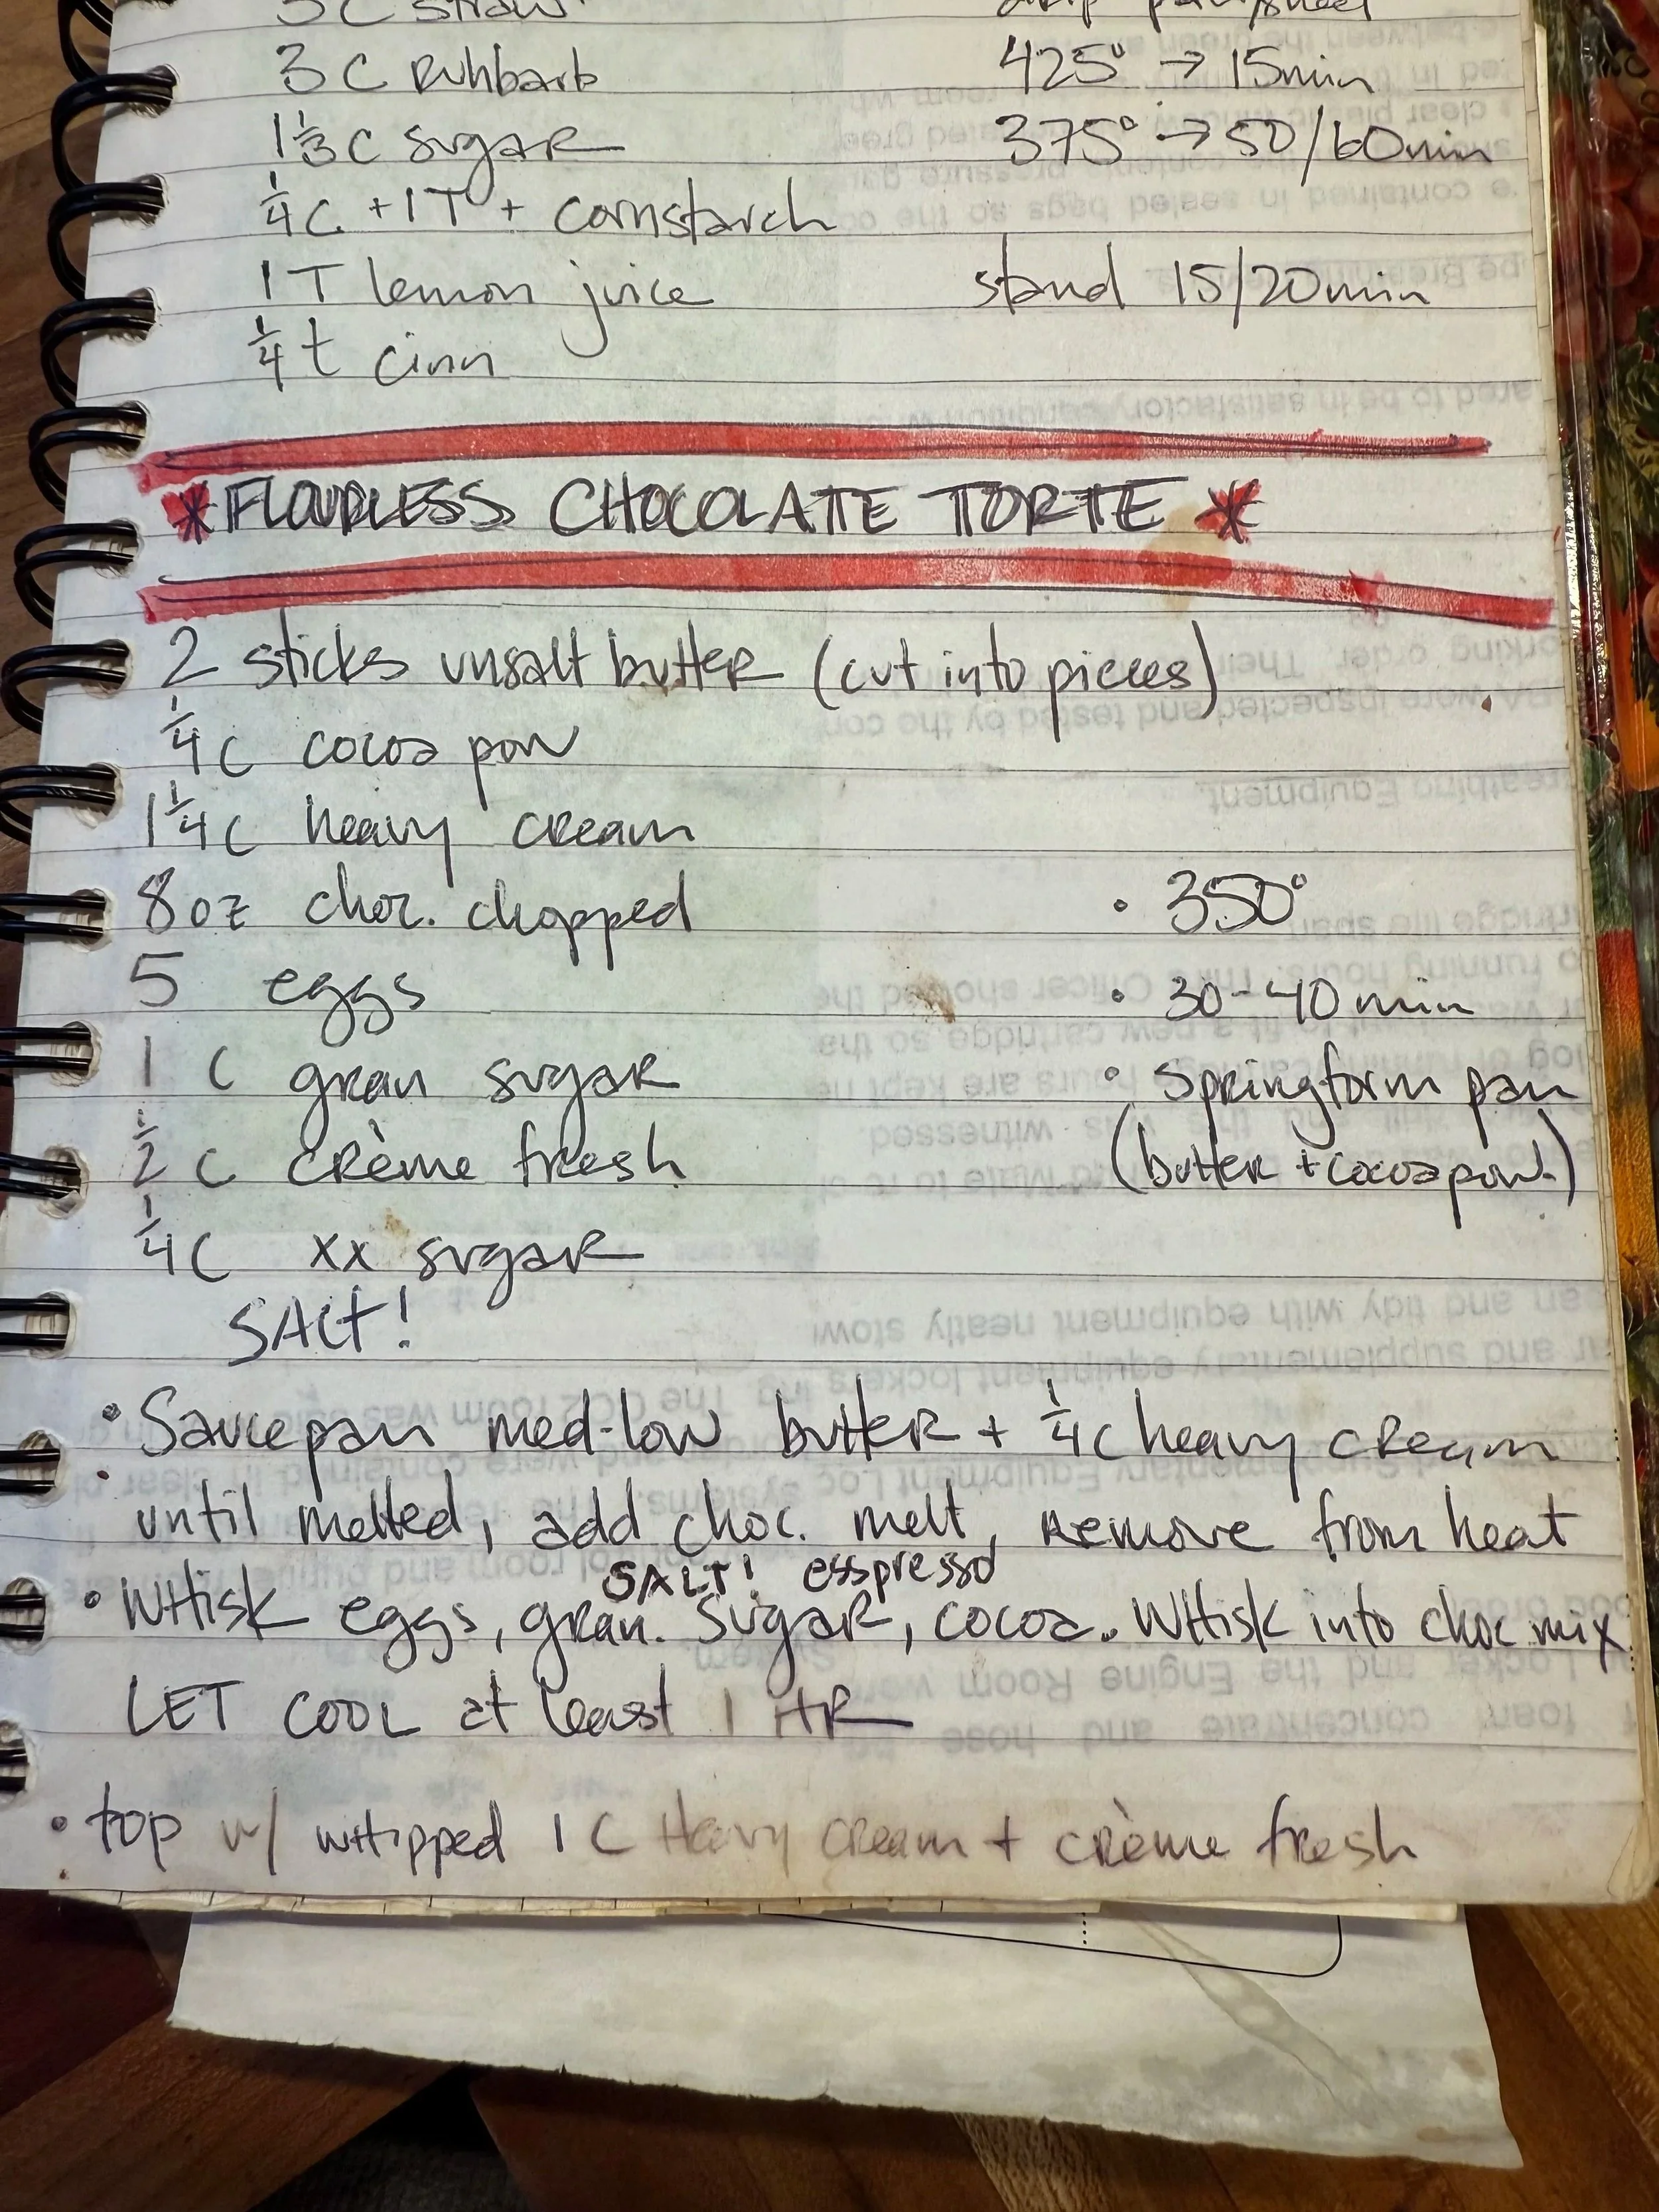 3 C straw
3 C Ruhbarb
1 1/3 C sugar
1/4 C + 1T + cornstarch
1 T lemon juice
1/4 t cinn
425° → 15min
375° → 50/60min
stand 15/20min
*FLOURLESS CHOCOLATE TORTE*
2 sticks unsalt butter (cut into pieces)
1/4 C cocoa pow
1 1/4 C heavy cream
8 oz choc. chopped
5 eggs
1 C gran sugar
1/2 C crème fresh
1/4 C xx sugar
SALt!
• 350°
• 30-40 min
• Springform pan
(butter + cocoa pow.)
• Saucepan med-low butter + 1/4 C heavy cream
until melted, add choc. melt, Remove from heat
SALT! esspresso
• WHisk eggs, gran. Sugar, cocoa. WHisk into choc mix
LET COOL at least 1 HR
• top w/ wHipped 1 C Heavy cream + crème fresh